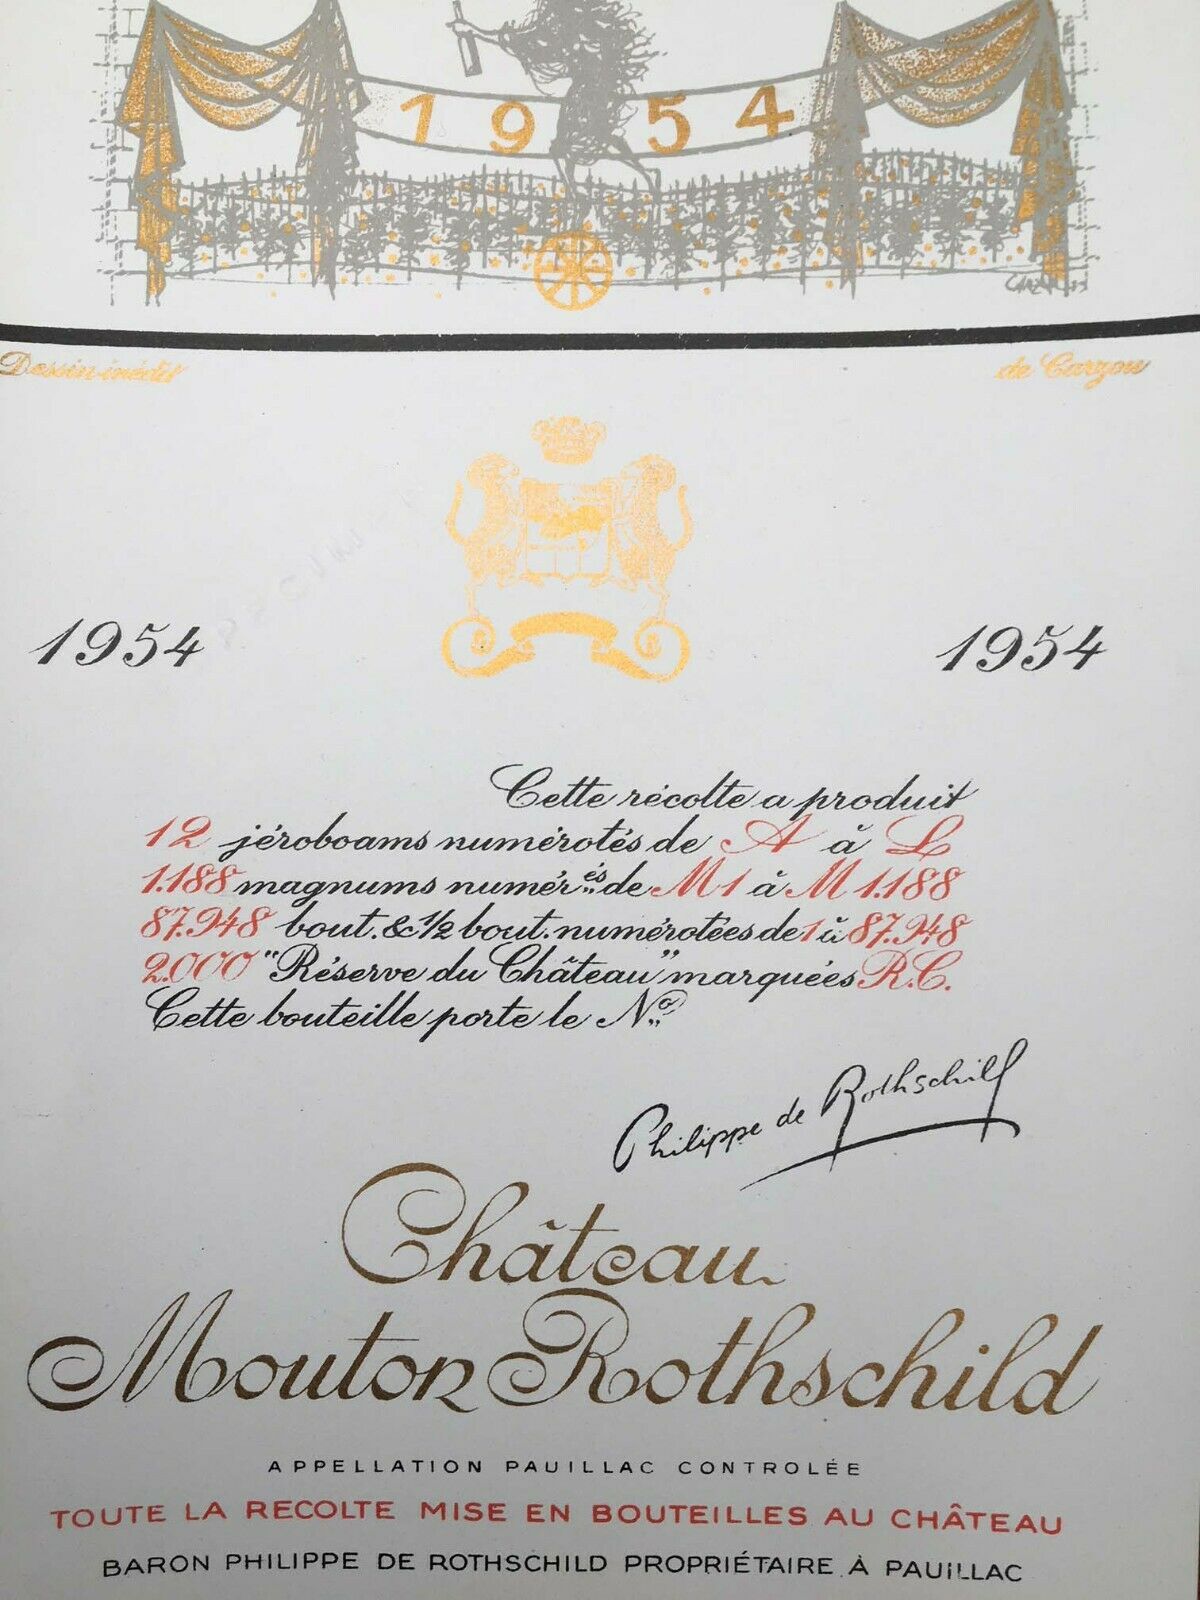 1954
CARZOU 55
Dessin inédit de Carzou
1954 1954
Cette récolte a produit
12 jéroboams numérotés de A à L
1.188 magnums numérés de M1 à M 1.188
87.948 bout. & 1/2 bout. numérotées de 1 à 87.948
2.000 "Réserve du Château" marquées R.C.
Cette bouteille porte le No
Philippe de Rothschild
Château
Mouton Rothschild
APPELLATION PAUILLAC CONTROLÉE
TOUTE LA RECOLTE MISE EN BOUTEILLES AU CHÂTEAU
BARON PHILIPPE DE ROTHSCHILD PROPRIÉTAIRE À PAUILLAC